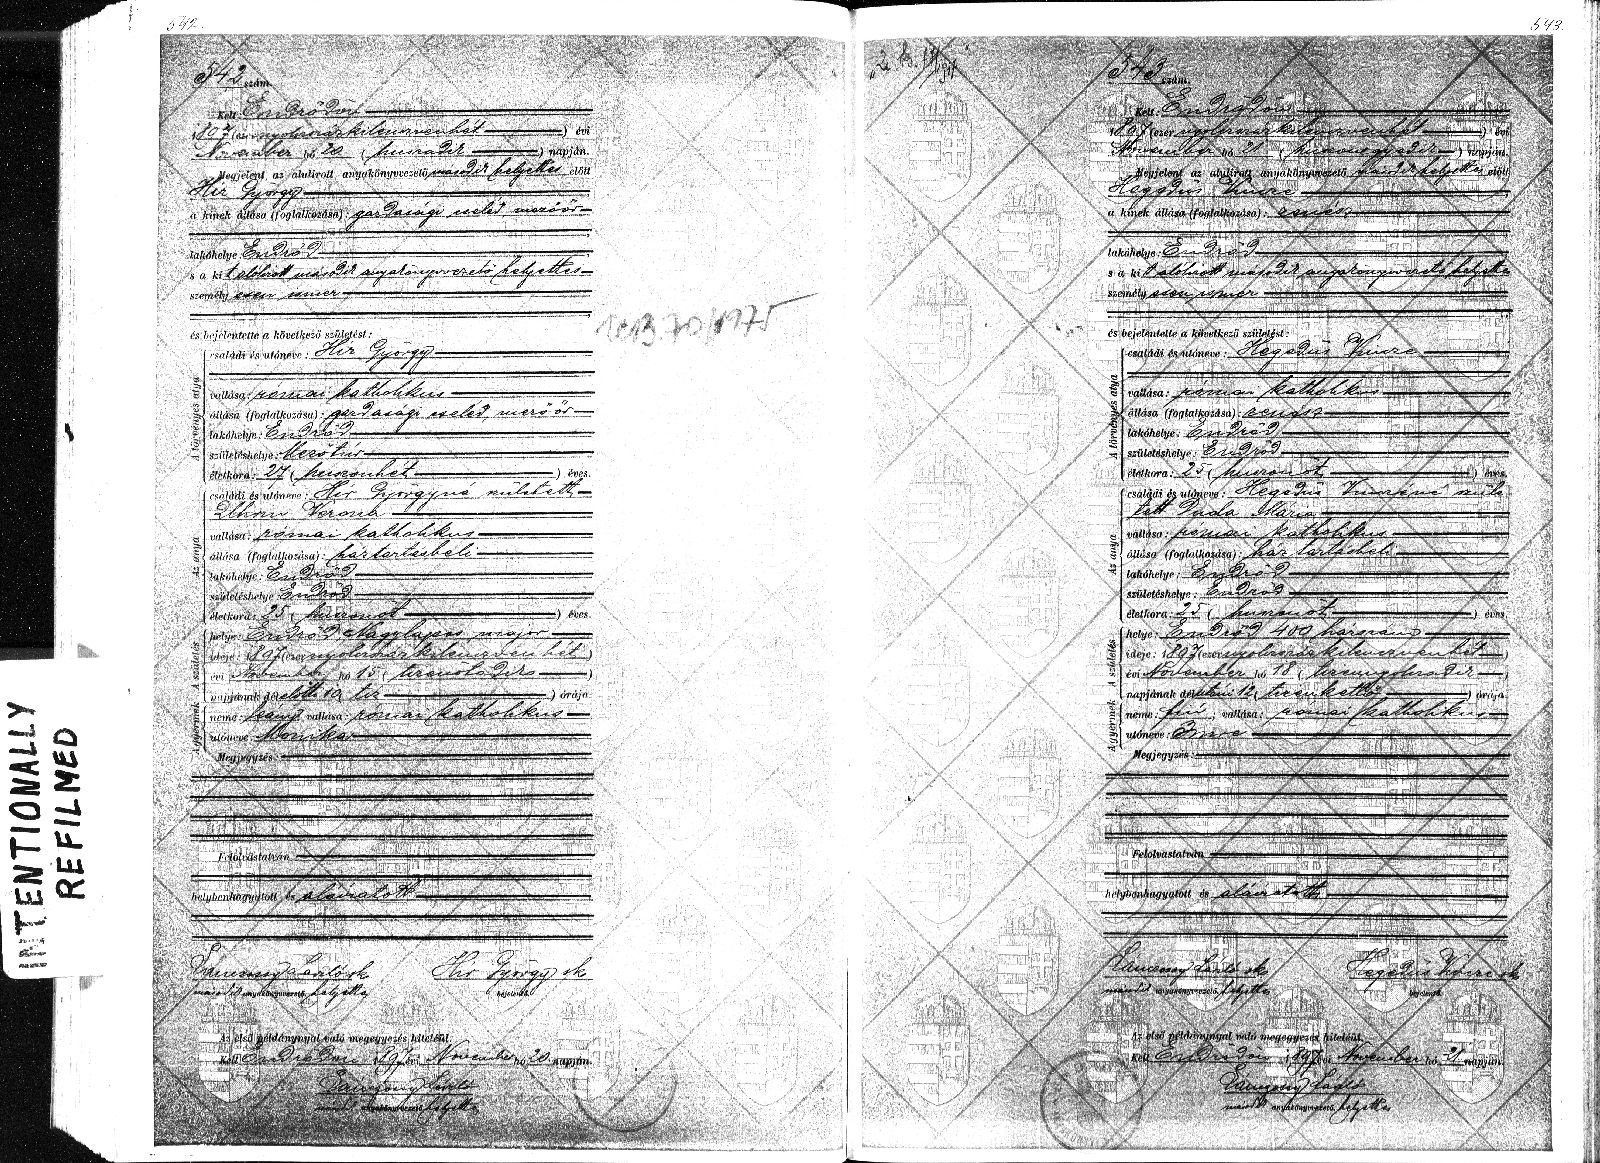 542.
542 szám.
Kelt Endrődön
1897 (ezernyolcszázkilencvenhét) évi
November hó 20 (huszadik) napján.
Megjelent az alulirott anyakönyvvezető második helyettes előtt
Hir György
a kinek állása (foglalkozása): gazdasági cseléd mezőőr
lakóhelye Endrőd
s a kit alulirott második anyakönyvvezető helyettes
személyesen ismer
és bejelentette a következő születést:
A törvényes atya
családi és utóneve: Hir György
vallása: római katholikus
állása (foglalkozása): gazdasági cseléd, mezőőr
lakóhelye: Endrőd
születéshelye: Mezőtúr
életkora: 27 (huszonhét) éves.
Az anya
családi és utóneve: Hir Györgyné született
Verona
vallása: római katholikus
állása (foglalkozása): háztartásbeli
lakóhelye: Endrőd
születéshelye: Endrőd
életkora: 25 (huszonöt) éves.
A születés
helye: Endrőd Nagylapos major
ideje: 1897 (ezernyolcszázkilencvenhét)
évi November hó 15 (tizenötödik)
napjának délelőtti 10 (tíz) órája.
A gyermek
neme: vallása: római katholikus
utóneve: Monika
Megjegyzés:
Felolvastatván
helybenhagyatott és aláíratott
László sk Hir György sk
második anyakönyvvezető, helyettes bejelentő.
Az első példánynyal való megegyezés hiteléül.
Kelt Endrődön 1897 évi November hó 20. napján.
László
második anyakönyvvezető helyettes
543.
543 szám.
Kelt Endrődön
1897 (ezernyolcszázkilencvenhét) évi
November hó 21 (huszonegyedik) napján.
Megjelent az alulirott anyakönyvvezető második helyettes előtt
Hegedüs Vincze
a kinek állása (foglalkozása):
lakóhelye: Endrőd
s a kit alulirott második anyakönyvvezető helyettes
személyesen ismer
és bejelentette a következő születést:
A törvényes atya
családi és utóneve: Hegedüs Vincze
vallása: római katholikus
állása (foglalkozása):
lakóhelye: Endrőd
születéshelye: Endrőd
életkora: 25 (huszonöt) éves.
Az anya
családi és utóneve: Hegedüs Vinczéné szüle
tett Duda Mária
vallása: római katholikus
állása (foglalkozása): háztartásbeli
lakóhelye: Endrőd
születéshelye: Endrőd
életkora: 25 (huszonöt) éves
A születés
helye: Endrőd 400 házszám
ideje: 1897 (ezernyolcszázkilencvenhét)
évi November hó 18 (tizennyolcadik)
napjának délutáni 12 (tizenkettő) órája
A gyermek
neme: fiú; vallása: római katholikus
utóneve: Imre
Megjegyzés:
Felolvastatván
helybenhagyatott és aláíratott
László sk Hegedüs Vincze sk
második anyakönyvvezető, helyettes bejelentő.
Az első példánynyal való megegyezés hiteléül.
Kelt Endrődön 1897 évi November hó 21 napján.
László
második anyakönyvvezető helyettes
INTENTIONALLY
REFILMED